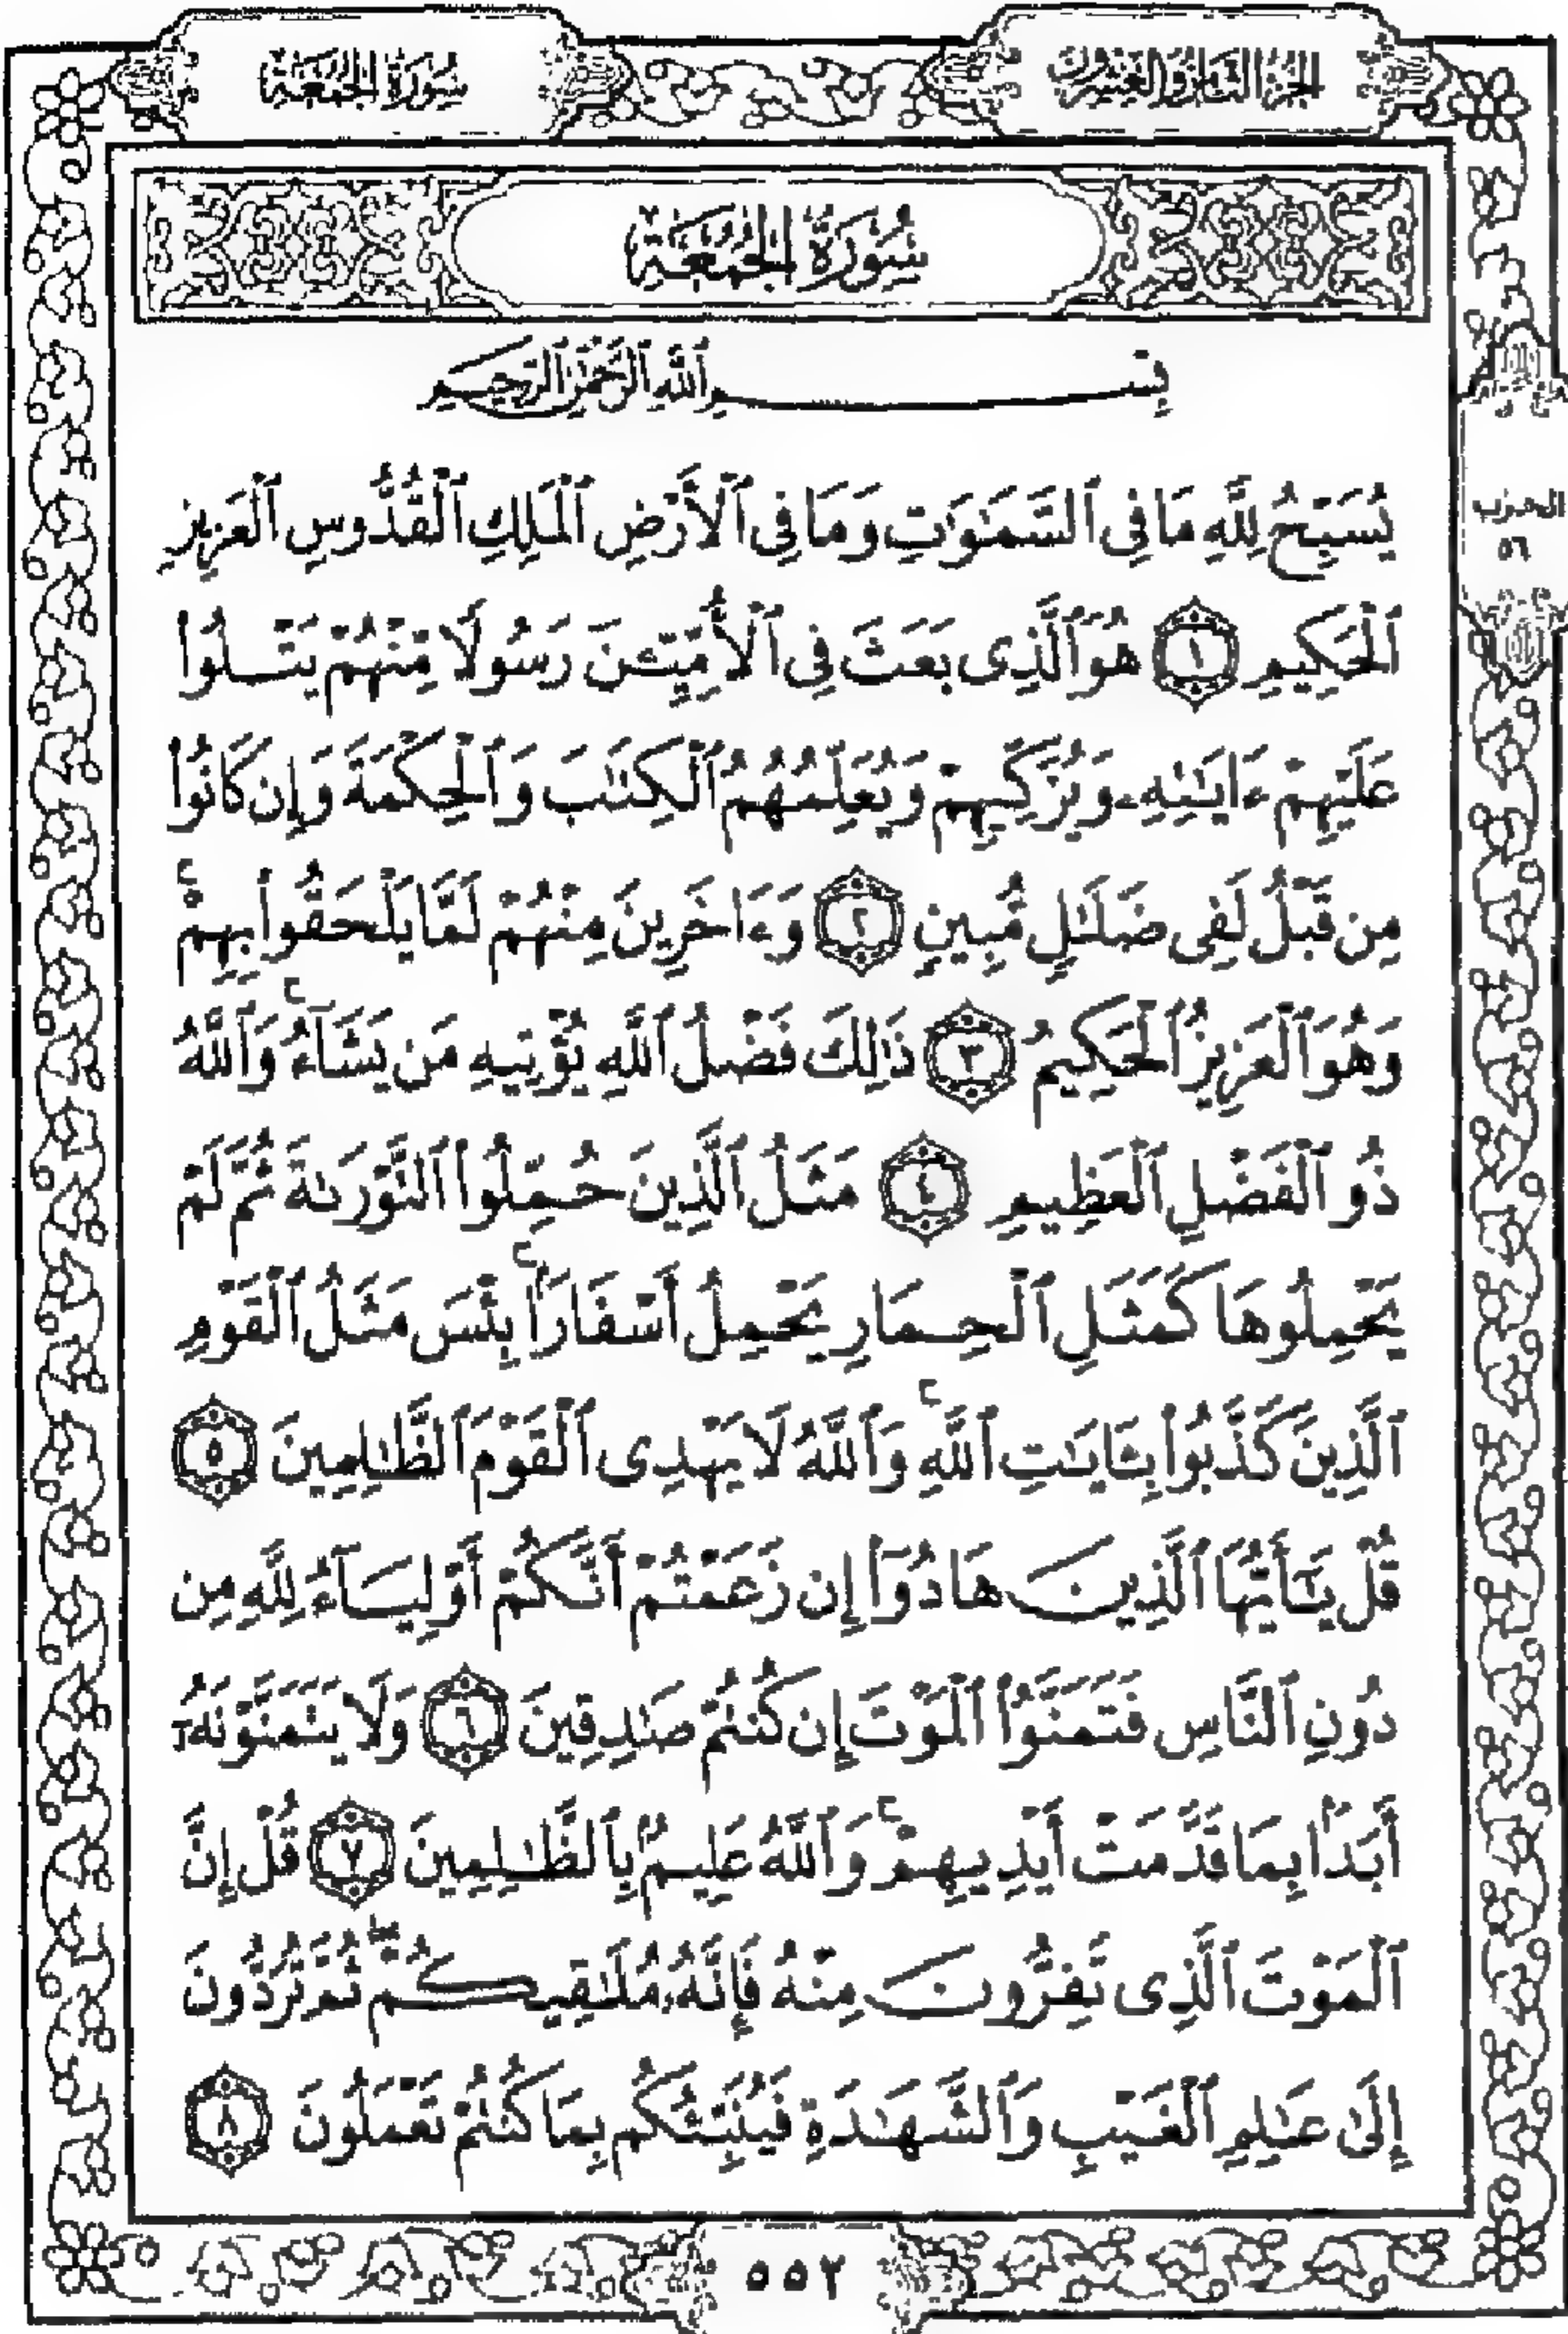 الجزء الثامن والعشرون
سورة الجمعة
سُورَةُ الجُمُعَةِ
بِسْمِ اللَّهِ الرَّحْمَٰنِ الرَّحِيمِ
يُسَبِّحُ لِلَّهِ مَا فِى ٱلسَّمَٰوَٰتِ وَمَا فِى ٱلْأَرْضِ ٱلْمَلِكِ ٱلْقُدُّوسِ ٱلْعَزِيزِ
ٱلْحَكِيمِ ١ هُوَ ٱلَّذِى بَعَثَ فِى ٱلْأُمِّيِّـۧنَ رَسُولًا مِّنْهُمْ يَتْلُوا۟
عَلَيْهِمْ ءَايَٰتِهِۦ وَيُزَكِّيهِمْ وَيُعَلِّمُهُمُ ٱلْكِتَٰبَ وَٱلْحِكْمَةَ وَإِن كَانُوا۟
مِن قَبْلُ لَفِى ضَلَٰلٍ مُّبِينٍ ٢ وَءَاخَرِينَ مِنْهُمْ لَمَّا يَلْحَقُوا۟ بِهِمْ ۚ
وَهُوَ ٱلْعَزِيزُ ٱلْحَكِيمُ ٣ ذَٰلِكَ فَضْلُ ٱللَّهِ يُؤْتِيهِ مَن يَشَآءُ ۚ وَٱللَّهُ
ذُو ٱلْفَضْلِ ٱلْعَظِيمِ ٤ مَثَلُ ٱلَّذِينَ حُمِّلُوا۟ ٱلتَّوْرَىٰةَ ثُمَّ لَمْ
يَحْمِلُوهَا كَمَثَلِ ٱلْحِمَارِ يَحْمِلُ أَسْفَارًۢا ۚ بِئْسَ مَثَلُ ٱلْقَوْمِ
ٱلَّذِينَ كَذَّبُوا۟ بِـَٔايَٰتِ ٱللَّهِ ۚ وَٱللَّهُ لَا يَهْدِى ٱلْقَوْمَ ٱلظَّٰلِمِينَ ٥
قُلْ يَٰٓأَيُّهَا ٱلَّذِينَ هَادُوٓا۟ إِن زَعَمْتُمْ أَنَّكُمْ أَوْلِيَآءُ لِلَّهِ مِن
دُونِ ٱلنَّاسِ فَتَمَنَّوُا۟ ٱلْمَوْتَ إِن كُنتُمْ صَٰدِقِينَ ٦ وَلَا يَتَمَنَّوْنَهُۥٓ
أَبَدًۢا بِمَا قَدَّمَتْ أَيْدِيهِمْ ۚ وَٱللَّهُ عَلِيمٌۢ بِٱلظَّٰلِمِينَ ٧ قُلْ إِنَّ
ٱلْمَوْتَ ٱلَّذِى تَفِرُّونَ مِنْهُ فَإِنَّهُۥ مُلَٰقِيكُمْ ۖ ثُمَّ تُرَدُّونَ
إِلَىٰ عَٰلِمِ ٱلْغَيْبِ وَٱلشَّهَٰدَةِ فَيُنَبِّئُكُم بِمَا كُنتُمْ تَعْمَلُونَ ٨
الحزب
٥٦
٥٥٢